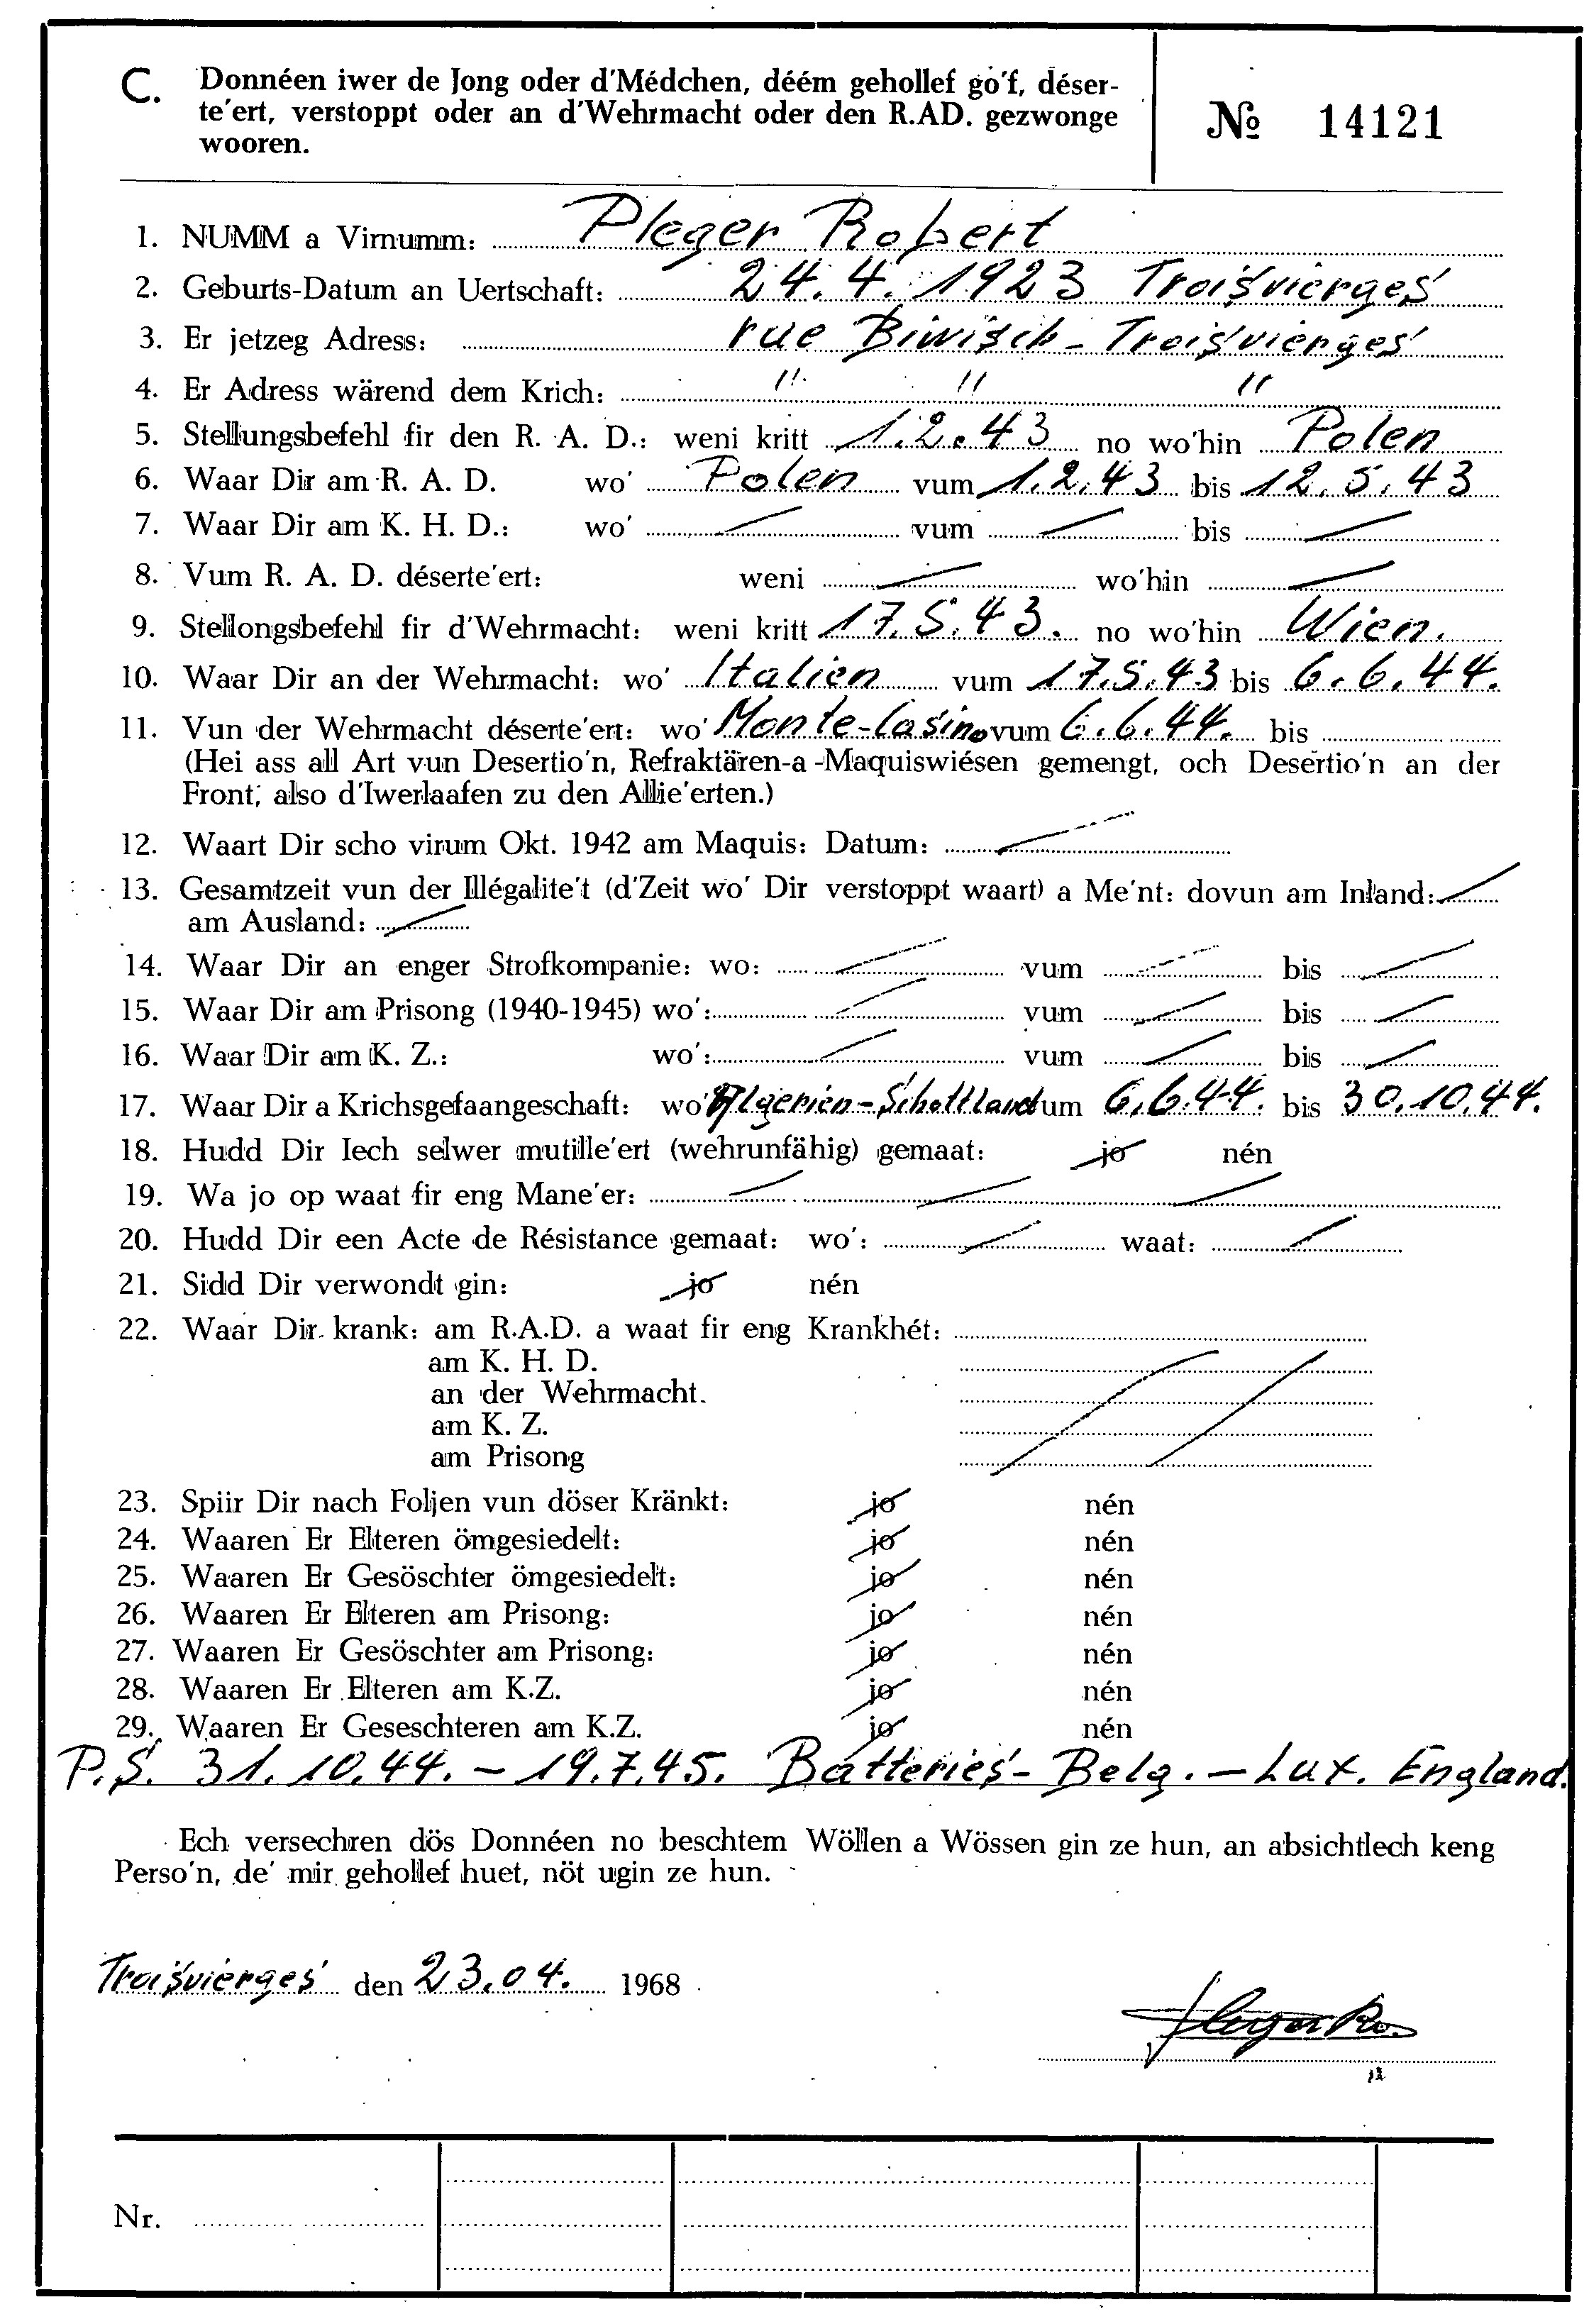 C. Donnéen iwer de Jong oder d'Médchen, déém gehollef go'f, déser-
te'ert, verstoppt oder an d'Wehrmacht oder den R.AD. gezwonge
wooren.
№ 14121
1. NUMM a Virnumm: Pleger Robert
2. Geburts-Datum an Uertschaft: 24.4.1923 Troisvierges
3. Er jetzeg Adress: rue Biwisch - Troisvierges
4. Er Adress wärend dem Krich: " " "
5. Stellungsbefehl fir den R. A. D.: weni kritt 1.2.43 no wo'hin Polen
6. Waar Dir am R. A. D. wo' Polen vum 1.2.43 bis 12.5.43
7. Waar Dir am K. H. D.: wo' / vum / bis /
8. Vum R. A. D. déserte'ert: weni / wo'hin /
9. Stellongsbefehl fir d'Wehrmacht: weni kritt 17.5.43. no wo'hin Wien.
10. Waar Dir an der Wehrmacht: wo' Italien vum 17.5.43 bis 6.6.44.
11. Vun der Wehrmacht déserte'ert: wo' Monte-Casino vum 6.6.44. bis
(Hei ass all Art vun Desertio'n, Refraktären-a-Maquiswiésen gemengt, och Desertio'n an der
Front, also d'Iwerlaafen zu den Allie'erten.)
12. Waart Dir scho virum Okt. 1942 am Maquis: Datum: /
13. Gesamtzeit vun der Illégalite't (d'Zeit wo' Dir verstoppt waart) a Me'nt: dovun am Inland: /
am Ausland: /
14. Waar Dir an enger Strofkompanie: wo: / vum / bis /
15. Waar Dir am Prisong (1940-1945) wo': / vum / bis /
16. Waar Dir am K. Z.: wo': / vum / bis /
17. Waar Dir a Krichsgefaangeschaft: wo' Algerien-Schottland vum 6.6.44. bis 30.10.44.
18. Hudd Dir Iech selwer mutille'ert (wehrunfähig) gemaat: jo nén
19. Wa jo op waat fir eng Mane'er: / / /
20. Hudd Dir een Acte de Résistance gemaat: wo': / waat: /
21. Sidd Dir verwondt gin: jo nén
22. Waar Dir krank: am R.A.D. a waat fir eng Krankhét:
am K. H. D.
an der Wehrmacht.
am K. Z.
am Prisong
23. Spiir Dir nach Foljen vun döser Kränkt: jo nén
24. Waaren Er Elteren ömgesiedelt: jo nén
25. Waaren Er Gesöschter ömgesiedelt: jo nén
26. Waaren Er Elteren am Prisong: jo nén
27. Waaren Er Gesöschter am Prisong: jo nén
28. Waaren Er Elteren am K.Z. jo nén
29. Waaren Er Geseschteren am K.Z. jo nén
P.S. 31.10.44. - 19.7.45. Batteries-Belg. - Lux. England.
Ech versechren dös Donnéen no beschtem Wöllen a Wössen gin ze hun, an absichtlech keng
Perso'n, de' mir gehollef huet, nöt ugin ze hun.
Troisvierges den 23.04. 1968
Pleger Ro.
Nr.